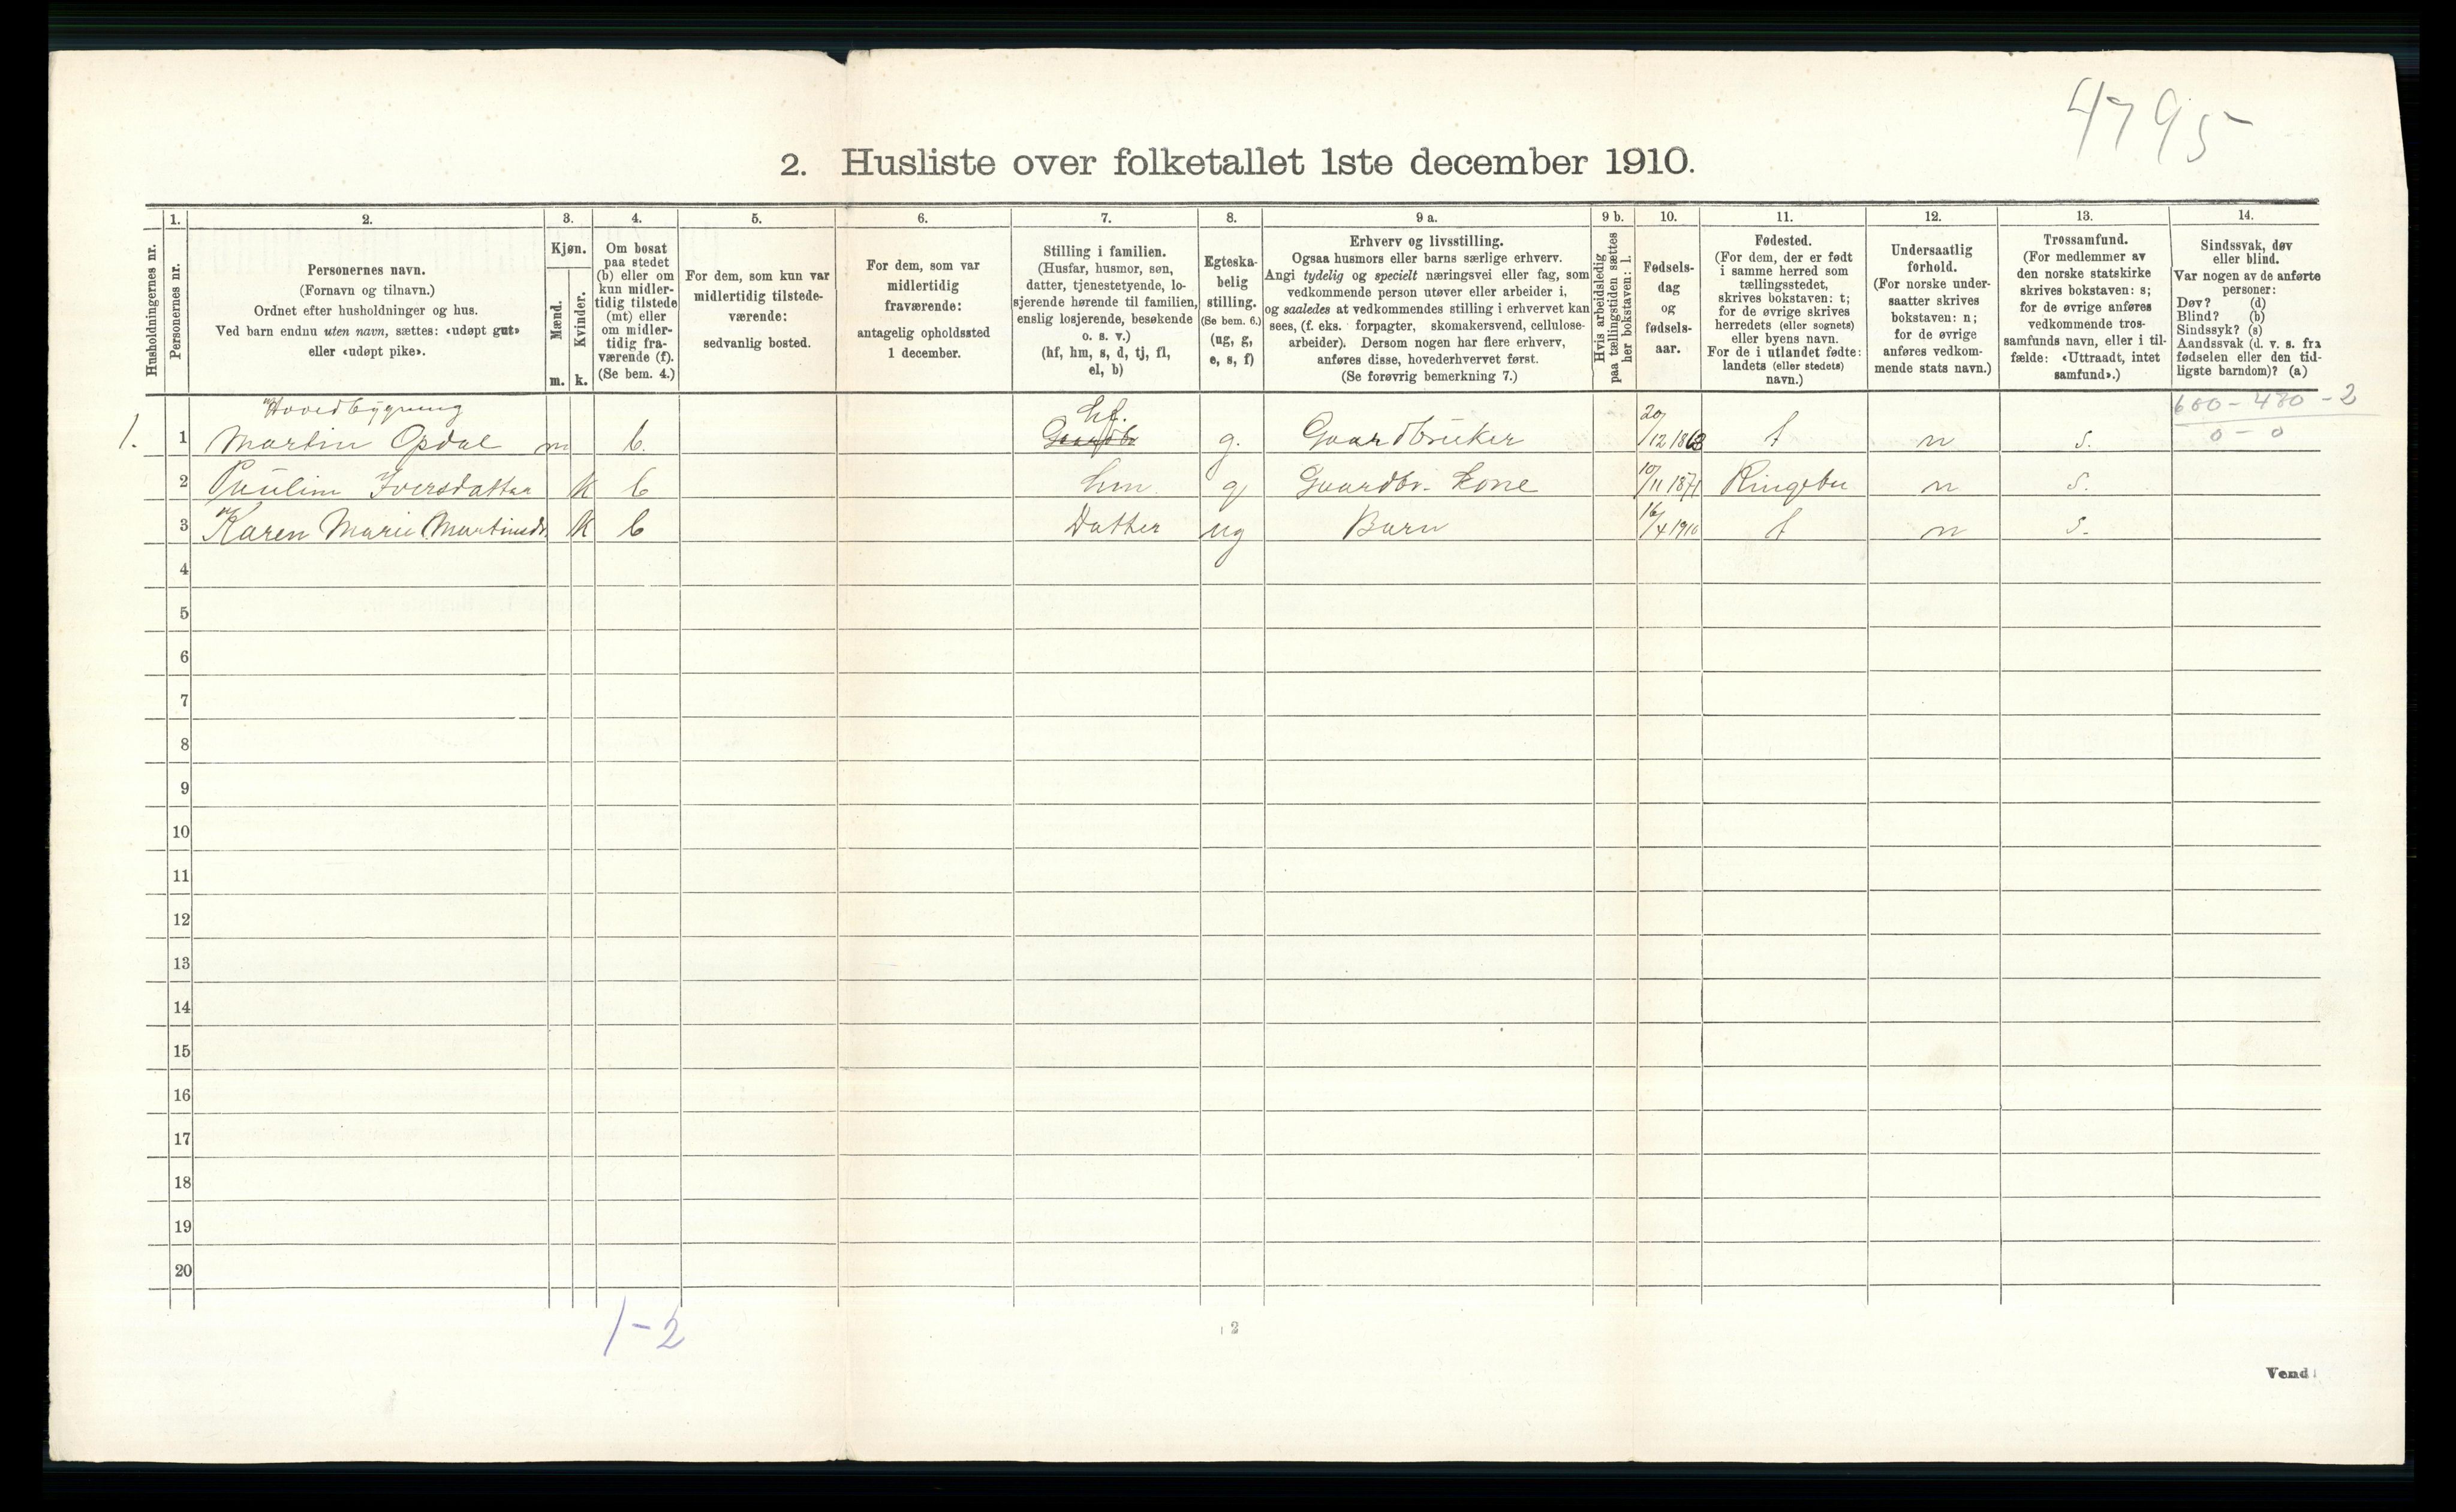 4795
2. Husliste over folketallet 1ste december 1910.
Husholdningernes nr.
1.
Personernes nr.
2.
Personernes navn.
(Fornavn og tilnavn.)
Ordnet efter husholdninger og hus.
Ved barn endnu uten navn, sættes: «udøpt gut»
eller «udøpt pike».
3.
Kjøn.
Mænd.
Kvinder.
m. k.
4.
Om bosat
paa stedet
(b) eller om
kun midler-
tidig tilstede
(mt) eller
om midler-
tidig fra-
værende (f).
(Se bem. 4.)
5.
For dem, som kun var
midlertidig tilstede-
værende:
sedvanlig bosted.
6.
For dem, som var
midlertidig
fraværende:
antagelig opholdssted
1 december.
7.
Stilling i familien.
(Husfar, husmor, søn,
datter, tjenestetyende, lo-
sjerende hørende til familien,
enslig losjerende, besøkende
o. s. v.)
(hf, hm, s, d, tj, fl,
el, b)
8.
Egteska-
belig
stilling.
(Se bem. 6.)
(ug, g,
e, s, f)
9 a.
Erhverv og livsstilling.
Ogsaa husmors eller barns særlige erhverv.
Angi tydelig og specielt næringsvei eller fag, som
vedkommende person utøver eller arbeider i,
og saaledes at vedkommendes stilling i erhvervet kan
sees, (f. eks. forpagter, skomakersvend, cellulose-
arbeider). Dersom nogen har flere erhverv,
anføres disse, hovederhvervet først.
(Se forøvrig bemerkning 7.)
9 b.
Hvis arbeidsledig
paa tællingstiden sættes
her bokstaven: l.
10.
Fødsels-
dag
og
fødsels-
aar.
11.
Fødested.
(For dem, der er født
i samme herred som
tællingsstedet,
skrives bokstaven: t;
for de øvrige skrives
herredets (eller sognets)
eller byens navn.
For de i utlandet fødte:
landets (eller stedets)
navn.)
12.
Undersaatlig
forhold.
(For norske under-
saatter skrives
bokstaven: n;
for de øvrige
anføres vedkom-
mende stats navn.)
13.
Trossamfund.
(For medlemmer av
den norske statskirke
skrives bokstaven: s;
for de øvrige anføres
vedkommende tros-
samfunds navn, eller i til-
fælde: «Uttraadt, intet
samfund».)
14.
Sindssvak, døv
eller blind.
Var nogen av de anførte
personer:
Døv? (d)
Blind? (b)
Sindssyk? (s)
Aandssvak (d. v. s. fra
fødselen eller den tid-
ligste barndom)? (a)
Hovedbygning hf. 600-480-2
1. 1 Martin Opdal m b. Gaardbr g. Gaardbruker 20/12 1863 t n s. 0-0
2 Pauline Iversdatter k b hm g Gaardbr. kone 10/11 1871 Ringebu n s.
3 Karen Marie Martinsdr. k b Datter ug Barn 16/4 1910 t n s.
4
5
6
7
8
9
10
11
12
13
14
15
16
17
18
19
20
1-2
2
Vend